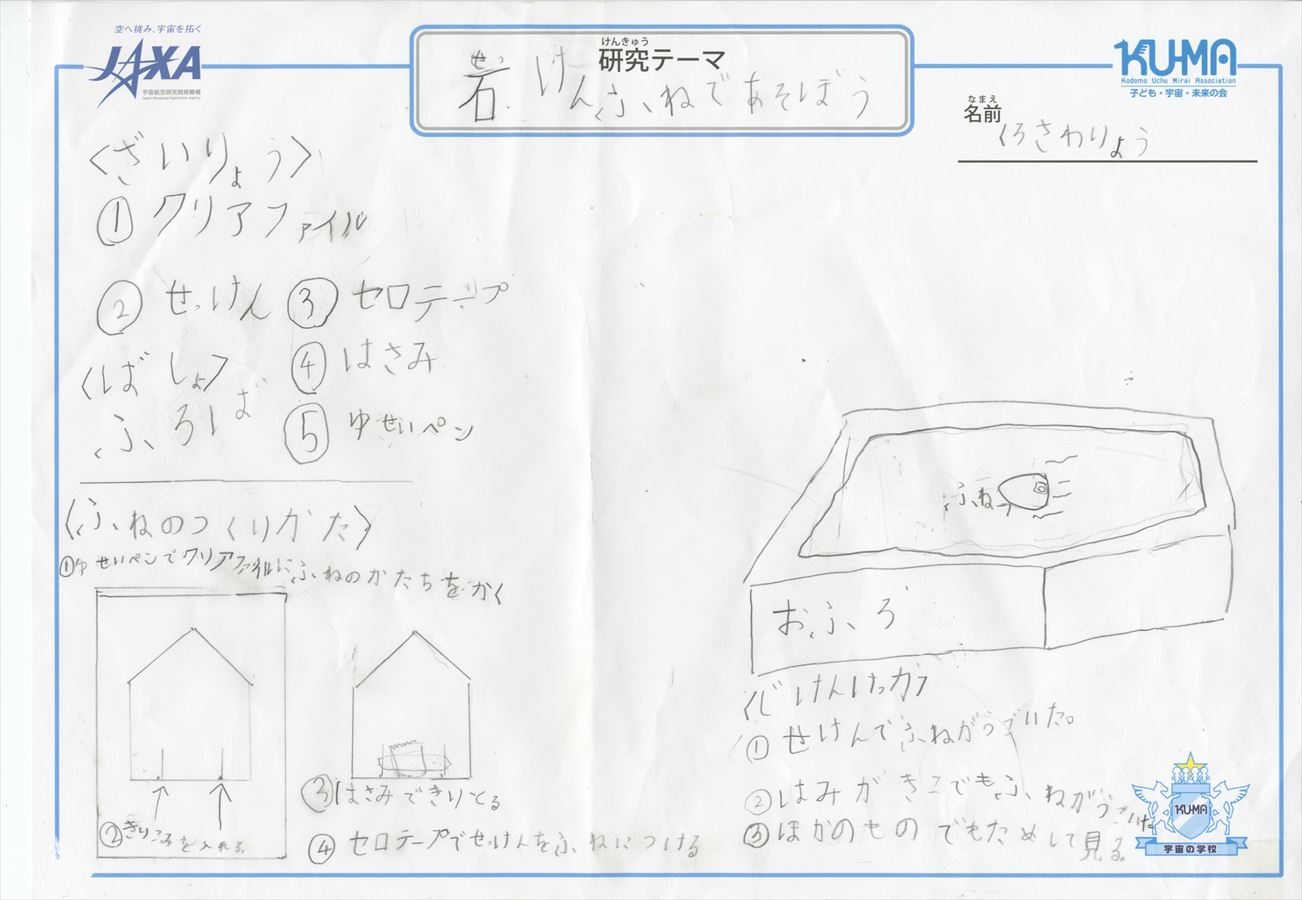 空へ挑み、宇宙を拓く
JAXA
宇宙航空研究開発機構
Japan Aerospace Exploration Agency
けんきゅう
研究テーマ
せっ
岩けんふねであそぼう
KUMA
Kodomo Uchu Mirai Association
子ども・宇宙・未来の会
なまえ
名前
くろさわりょう
〈ざいりょう〉
① クリアファイル
② せっけん
③ セロテープ
④ はさみ
⑤ ゆせいペン
〈ばしょ〉
ふろば
〈ふねのつくりかた〉
①ゆせいペンでクリアファイルにふねのかたちをかく
②きりこみを入れる
③はさみできりとる
④ セロテープでせっけんをふねにつける
ふね
おふろ
〈じけんけっか〉
① せけんでふねがうごいた。
② はみがきこでもふねがうごいた
③ ほかのものでもためして見る。
KUMA
宇宙の学校